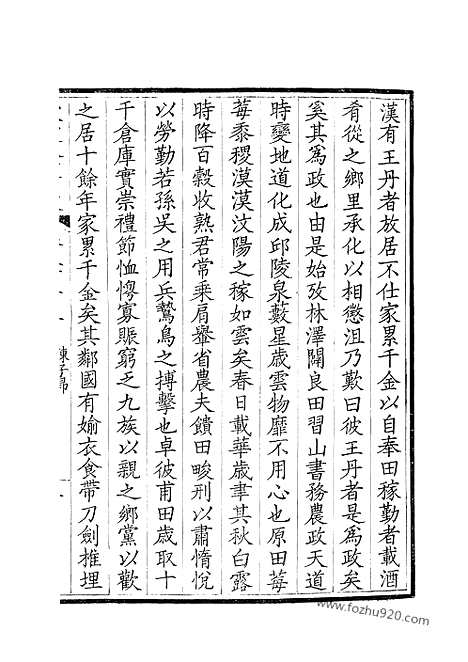 漢有王丹者放居不仕家累千金以自奉田稼勤者載酒
肴從之鄉里承化以相懲沮乃歎曰彼王丹者是爲政矣
奚其爲政也由是始攷林澤闢良田習山書務農政天道
時變地道化成邱陵泉藪星歳雲物靡不用心也原田莓
莓黍稷漠漠汶陽之稼如雲矣春日載華歳聿其秋白露
時降百穀收熟君常乘肩轝省農夫饋田畯刑以肅惰悅
以勞勤若孫吳之用兵鷙鳥之搏擊也卓彼甫田歳取十
千倉庫實崇禮節恤惸寡賑窮乏九族以親之鄉黨以歡
之居十餘年家累千金矣其鄰國有婾衣食帶刀劍椎埋
陳子昂
www.fozhu920.com